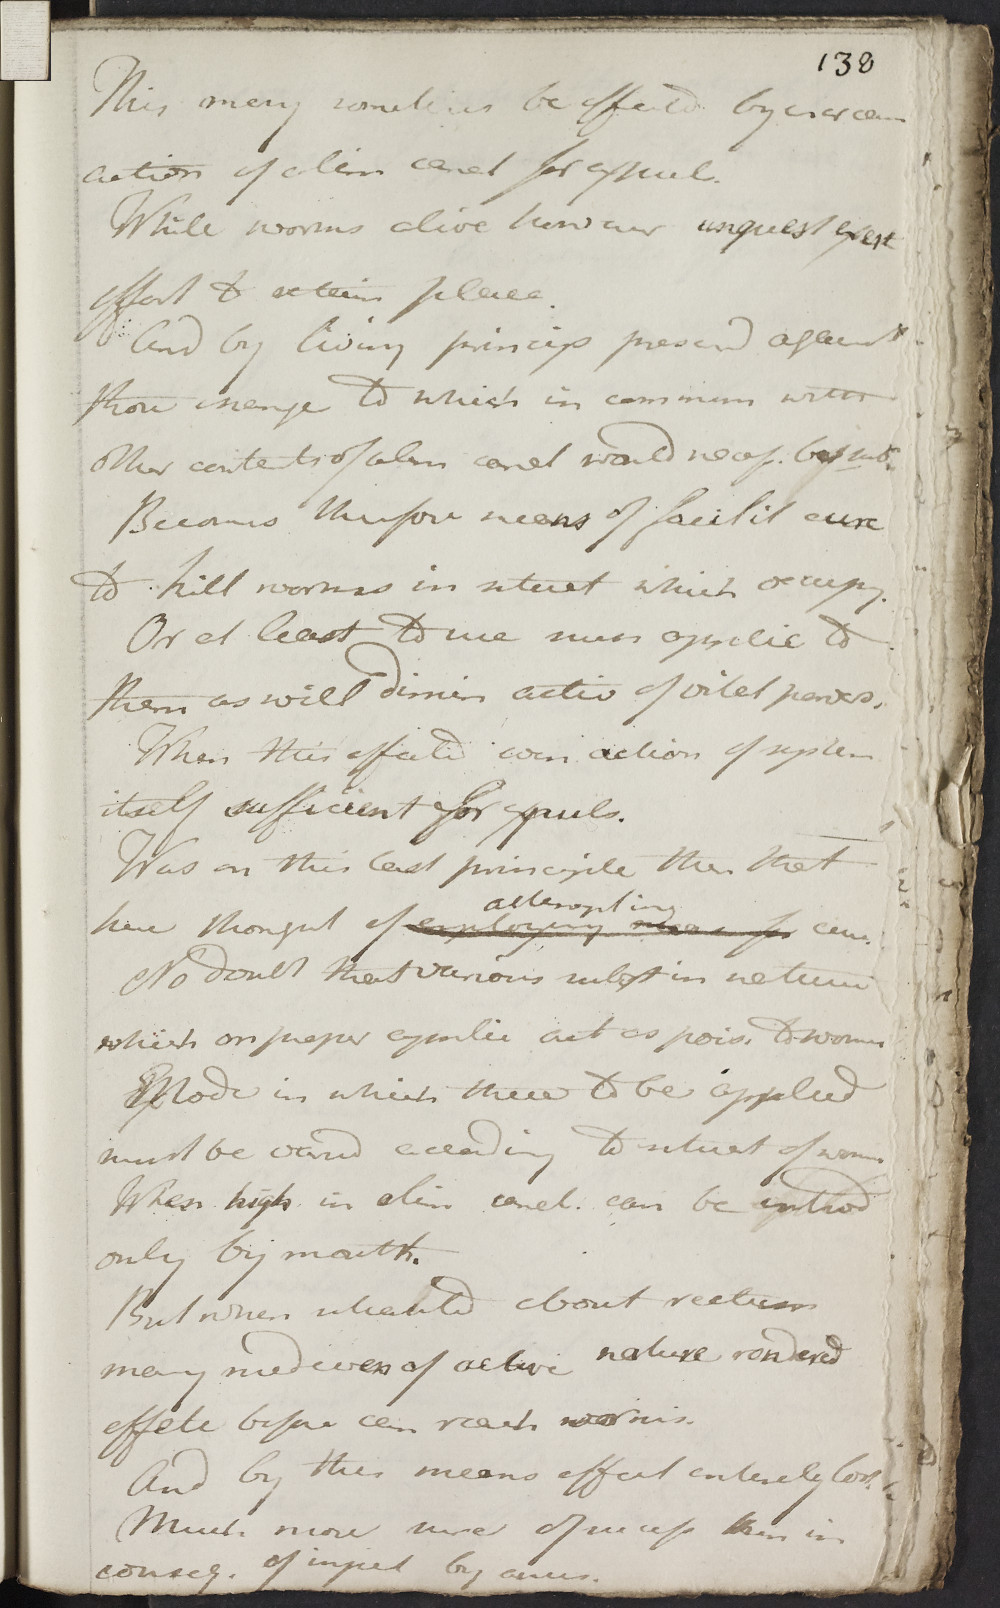 138
This may sometimes be effected by
action of alim canal for expul.
While worms alive however unquest exert
effort to retain place.
And by living princip preserd against
those change to which in common with
other contents of alim canal would necess. be sub.
Becomes therefore means of facilit cure
to kill worms in situat which occupy.
Or at least to use such applic to
them as will dimin activ of vital powers.
When this effected com action of system
itself sufficient for expuls.
Was on this last principle then that
have thought of attempting cure.
No doubt that various subst in nature
which on proper applic act as pois. to worms
Mode in which these to be applied
must be varied according to situat of worms
When high in alim canal. can be introd
only by mouth.
But when situated about rectum
many medicines of active nature rendered
effete before can reach worms.
And by this means effect entirely lost.
Much more sure of success then in
conseq. of inject by anus.